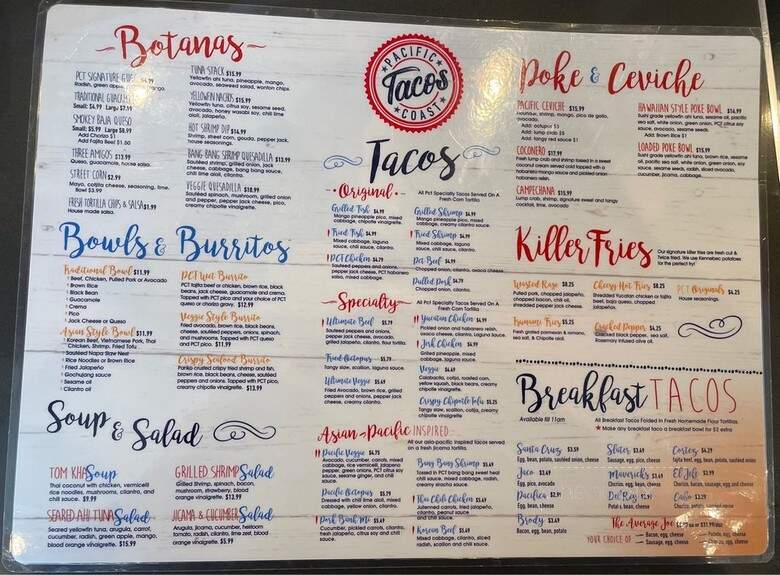 Botanas
PCT SIGNATURE
TRADITIONAL
Small: $4.99 Large $7.99
SMOKEY BAJA QUESO
Small: $5.99 Large $8.99
Add Chorizo $1
Add Fajita Beef $1.50
THREE AMIGOS $13.99
Queso, guacamole, house salsa.
STREET CORN $2.99
Mayo, cotija cheese, seasoning, lime.
Bowl $3.99
FRESH TORTILLA CHIPS & SALSA $1.99
House made salsa.
TUNA STACK $15.99
Yellowfin ahi tuna, pineapple, mango,
avocado, seaweed salad, wonton chips.
YELLOWFIN NACHOS $15.99
Yellowfin tuna, citrus soy, sesame seed,
avocado, honey wasabi soy, chili lime
aioli, jalapeño.
HOT SHRIMP DIP $14.99
Shrimp, street corn, gouda, pepper jack,
house seasoning.
BANG BANG SHRIMP QUESADILLA $13.99
VEGGIE QUESADILLA $10.99
Sautéed spinach, mushroom, grilled onion
and peppers, pepper jack cheese, pico,
creamy chipotle vinaigrette.
Bowls & Burritos
Traditional Bowl $11.99
Beef, Chicken, Pulled Pork or Avocado
Brown Rice
Black Bean
Guacamole
Crema
Pico
Jack Cheese or Queso
Asian Style Bowl $11.99
Korean Beef, Vietnamese Pork, Thai
Chicken, Shrimp, Fried Tofu
Sautéed Napa Slaw
Rice Noodles or Brown Rice
Fried Jalapeño
Gochujang sauce
Sesame oil
Cilantro
PCT Wet Burrito
PCT fajita beef or chicken, brown rice, black
beans, jack cheese, guacamole and crema.
Topped with PCT pico and your choice of PCT
queso or chorizo gravy. $12.99
Veggie Style Burrito
Fried avocado, brown rice, black beans,
cheese, sautéed peppers, onions, spinach,
and mushrooms. Topped with PCT queso
and PCT pico. $11.99
Crispy Seafood Burrito
Panko crusted crispy fried shrimp and fish,
brown rice, black beans, cheese, sautéed
peppers and onions. Topped with PCT pico,
creamy chipotle vinaigrette. $13.99
Soup & Salad
TOM KHA Soup
Thai coconut with chicken, vermicelli
rice noodles, mushrooms, cilantro, and
chili sauce. $9.99
SEARED AHI TUNA Salad
Seared yellowfin tuna, arugula, carrot,
cucumber, radish, green apple, mango,
blood orange vinaigrette. $15.99
GRILLED SHRIMP Salad
Grilled Shrimp, spinach, bacon,
mushroom, strawberry, blood
orange vinaigrette. $13.99
JICAMA & CUCUMBER Salad
Arugula, jicama, cucumber, heirloom
tomato, radish, cilantro, lime zest, blood
orange vinaigrette.
PACIFIC
Tacos
COAST
Tacos
Original
All Pct Specialty Tacos Served On A
Fresh Corn Tortilla
Grilled Fish $4.99
Mango pineapple pico, mixed
cabbage, chipotle vinaigrette.
Fried Fish $4.99
Mixed cabbage, laguna
sauce, chili sauce, cilantro.
PCT Chicken $4.99
Sauteed peppers and onions,
pepper jack cheese, PCT habanero
salsa, mixed cabbage, cilantro.
Grilled Shrimp $4.99
Mango pineapple pico, mixed
cabbage, creamy cilantro.
Fried Shrimp $4.99
Mixed cabbage, laguna
sauce, chili sauce, cilantro.
Pct Beef $4.99
Chopped onion, cilantro, oaxaca cheese.
Pulled Pork $4.99
Chopped onion, cilantro.
Specialty
All Pct Specialty Tacos Served On A
Fresh Corn Tortilla
Ultimate Beef $5.79
Fried Octopus $5.79
Tangy slaw, scallion, laguna sauce.
Ultimate Veggie $5.49
Fried Avocado, brown rice, grilled
peppers and onions, mixed
cabbage, jack cheese, creamy
cilantro.
Yucatan Chicken $4.99
Pickled onion and habanero relish,
oaxaca cheese, cilantro, laguna sauce.
Jerk Chicken $4.99
Grilled pineapple, mixed
cabbage, laguna sauce.
Veggie $4.49
Calabacita, cotija, roasted corn,
yellow squash, black beans, creamy
chipotle vinaigrette.
Crispy Chipotle Tofu $5.25
Tangy slaw, scallion, cotija, creamy
chipotle vinaigrette.
Asian-Pacific INSPIRED
All our asia-pacific inspired tacos served
on a fresh jicama tortilla.
Pacific Veggie $4.75
Avocado, cucumber, carrots, mixed
cabbage, rice vermicelli, jalapeno
pepper, green onions, PCT citrus soy
sauce, sesame ginger, and chili
sauce.
Pacific Octopus $5.79
Dressed with chili lime aioli, mixed
cabbage, yellow onion, cilantro.
Pork Banh Mi $5.49
Cucumber, pickled carrots, cilantro,
fresh jalapeño, citrus soy and chili
sauce.
Bang Bang Shrimp $5.49
PCT spicy pink sauce, mixed
cabbage, radish, creamy
avocado sauce.
Thai Chili Chicken $5.49
Julienned carrots, fried jalapeno,
chopped peanuts, cilantro.
Korean Beef $5.49
Mixed cabbage, cilantro, sliced
radish, scallion and chili sauce.
Poke & Ceviche
PACIFIC CEVICHE $15.99
Flounder, shrimp, mango, pico de gallo,
avocado.
Add: octopus $3
Add: lump crab $5
Add: tangy red sauce $1
COCONERO $17.99
Fresh lump crab and shrimp tossed in a sweet
coconut cream served cold tapped with a
mango habanero sauce and pickled onion
habanero relish.
CAMPECHANA $15.99
Lump crab, shrimp, signature sweet and tangy
cocktail, lime, avocado.
HAWAIIAN STYLE POKE BOWL $14.99
Sushi grade yellowfin ahi tuna, sesame oil, pacific
sea salt, white onion, green onion, PCT citrus soy
sauce, avocado, sesame seeds.
Add: Brown Rice $1
LOADED POKE BOWL $15.99
Sushi grade yellowfin ahi tuna, brown rice, sesame
oil, pacific sea salt, white onion, green onion, soy
sauce, sesame seeds, radish, sliced avocado,
cucumber, jicama, cabbage.
Killer Fries
Our signature killer fries are fresh cut &
Twice fried. We use Kennebec potatoes
for the perfect fry!
Wasted Kage $8.25
Pulled pork, chopped jalapeño,
chopped bacon, chili oil,
shredded pepper jack cheese.
Tsunami Fries $5.25
Cheesy Hot Fries $8.25
Shredded Yucatan chicken or fajita
beef, baja queso, chopped
jalapeños.
Cracked Pepper $4.25
Cracked black pepper, sea salt,
Rosemary infused olive oil.
PCT Originals $4.25
House seasonings.
Breakfast TACOS
Available till 11am
All Breakfast Tacos Folded In Fresh Homemade Flour Tortillas.
Make any breakfast taco a breakfast bowl for $2 extra
Santa Cruz $3.59
Egg, bean, potato, sautéed onion, cheese
Jaco $3.49
Chorizo, egg, bean, cheese
Pacifica $2.99
Egg, bean, potato, cheese
Brody $3.49
Bacon, egg, bean, potato
Slater $3.49
Sausage, egg, pico, cheese
Maverick's $3.49
Chorizo, egg, bean, cheese
Del Rey $2.99
Potato, bean, cheese
Cortez $4.29
Fajita beef, egg, bean, potato, sautéed onion
El Jefe $3.99
Chorizo, bacon, sausage, egg, and cheese
Cabo $3.99
Chorizo, potato, avocado, cheese
The Average Joe
YOUR CHOICE OF
Bacon, egg, cheese
Sausage, egg, cheese
Potato, egg, cheese
Chorizo, egg, cheese